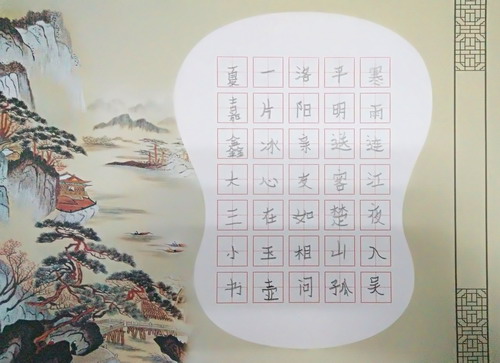 寒雨连江夜入吴
平明送客楚山孤
洛阳亲友如相问
一片冰心在玉壶
夏嘉鑫大三小书